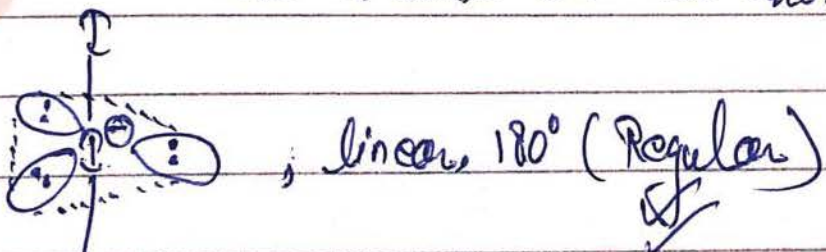 I
I ⊖ , linear, 180° (Regular)